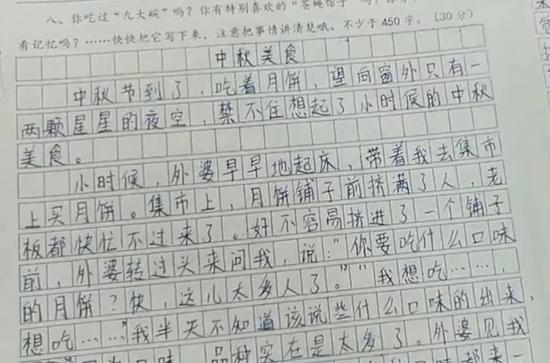 八、你吃过“九大碗”吗？你有特别喜欢的“苍蝇馆子”吗？你
有看记忆吗？……快快把它写下来，注意把事情讲清楚哦。不少于450字。（30分）
中秋美食
中秋节到了，吃着月饼，望向窗外只有一
两颗星星的夜空，禁不住想起了小时候的中秋
美食。
小时候，外婆早早地起床，带着我去集市
上买月饼。集市上，月饼铺子前挤满了人，老
板都快忙不过来了。好不容易挤进了一个铺子
前，外婆转过头来问我，说：“你要吃什么口味
的月饼？快，这儿太多人了。”“我想吃……，
想吃……”我半天不知道该说些什么口味的出来，
品种实在是太多了。外婆见我